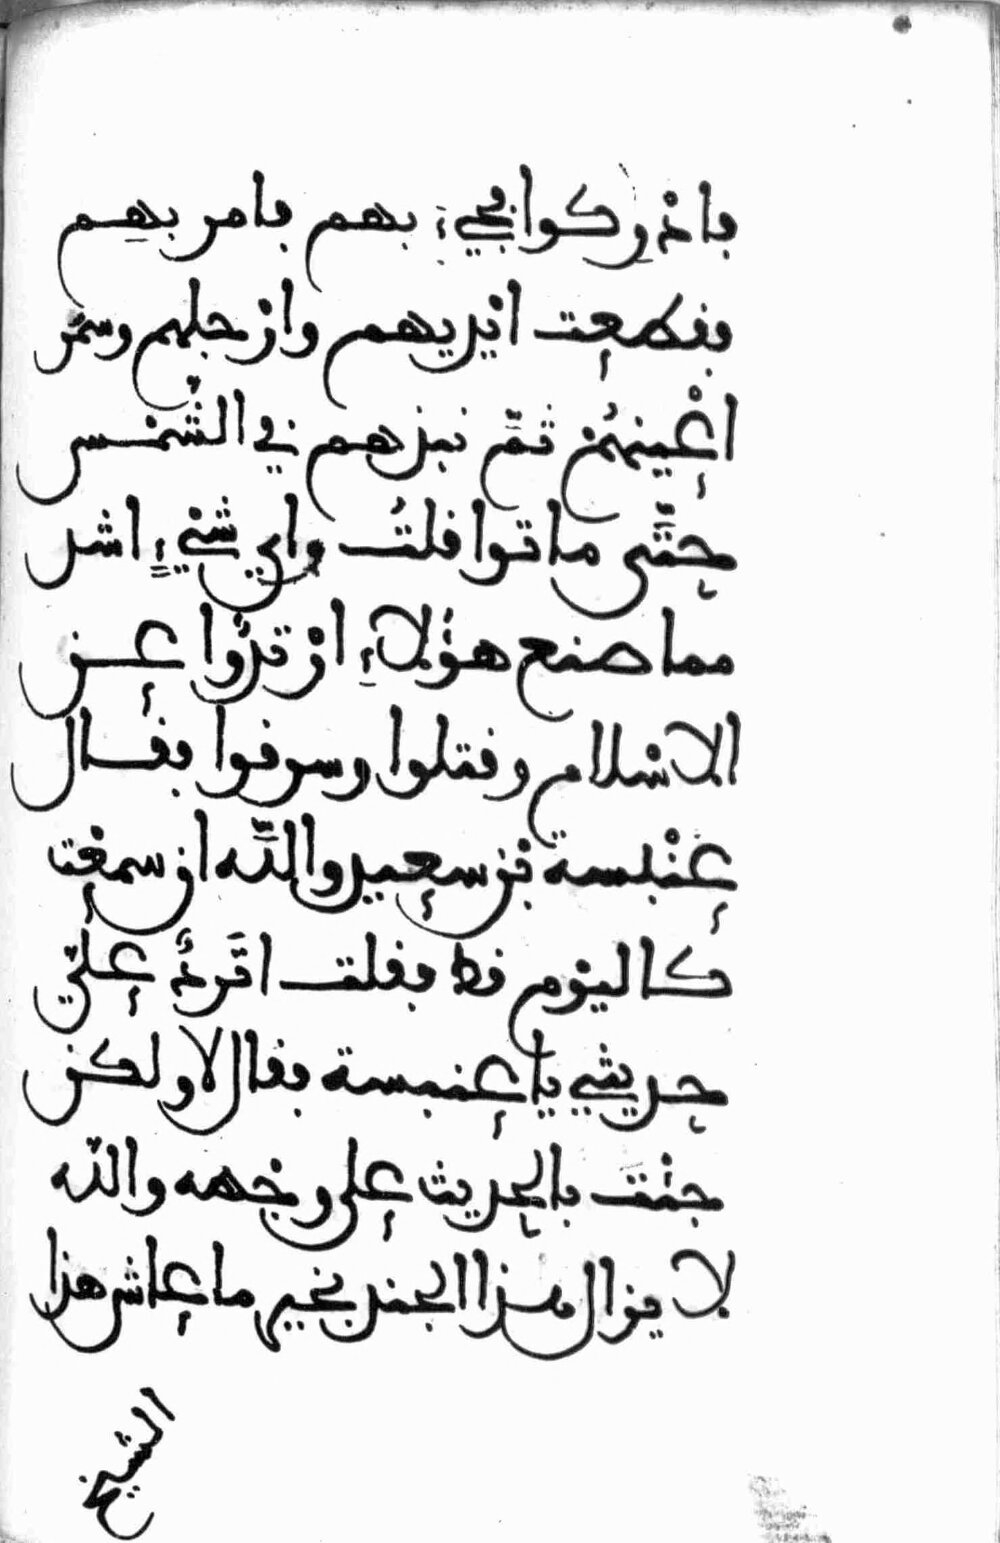 فادركوا فجيء بهم فامر بهم
فقطعت ايديهم وارجلهم وسمر
اعينهم ثمّ نبذهم في الشّمس
حتّى ماتوا قلتُ واي شيء اشد
مما صنع هؤلاء ارتدّوا عن
الاسلام وقتلوا وسرقوا فقال
عنبسة بن سعيد واللّه ان سمعت
كاليوم قط فقلت اتَردّ علي
حديثي يا عنبسة فقال لا ولكن
جئت بالحديث على وجهه والله
لا يزال هذا الجند بخير ما عاش هذا
الشيخ